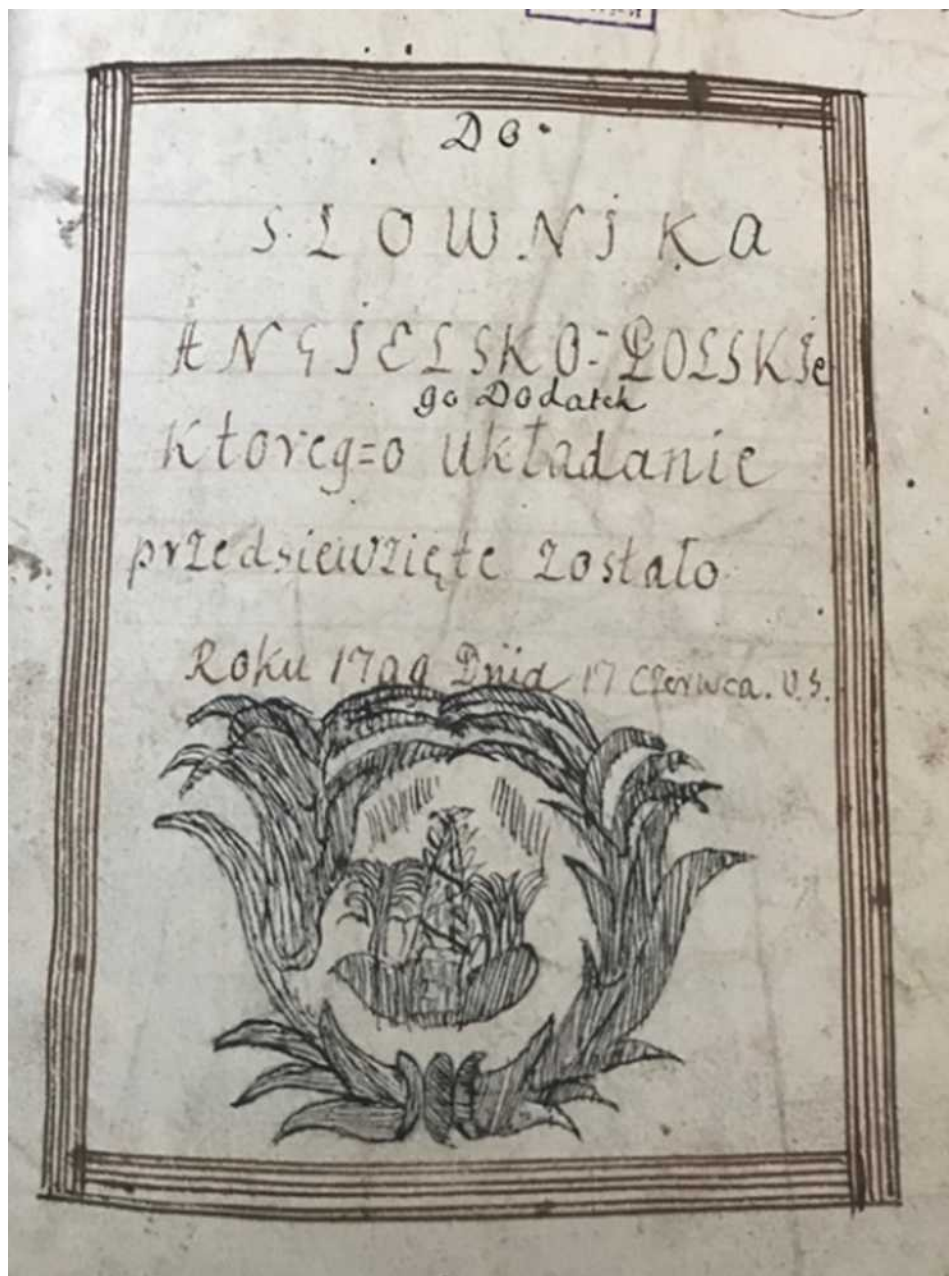 Do
SŁOWNIKA
ANGIELSKO=POLSKIe
go Dodatek
Ktoreg=o Układanie
przedsiewzięte zostało
Roku 1799 Dnia 17 Czerwca. V. S.